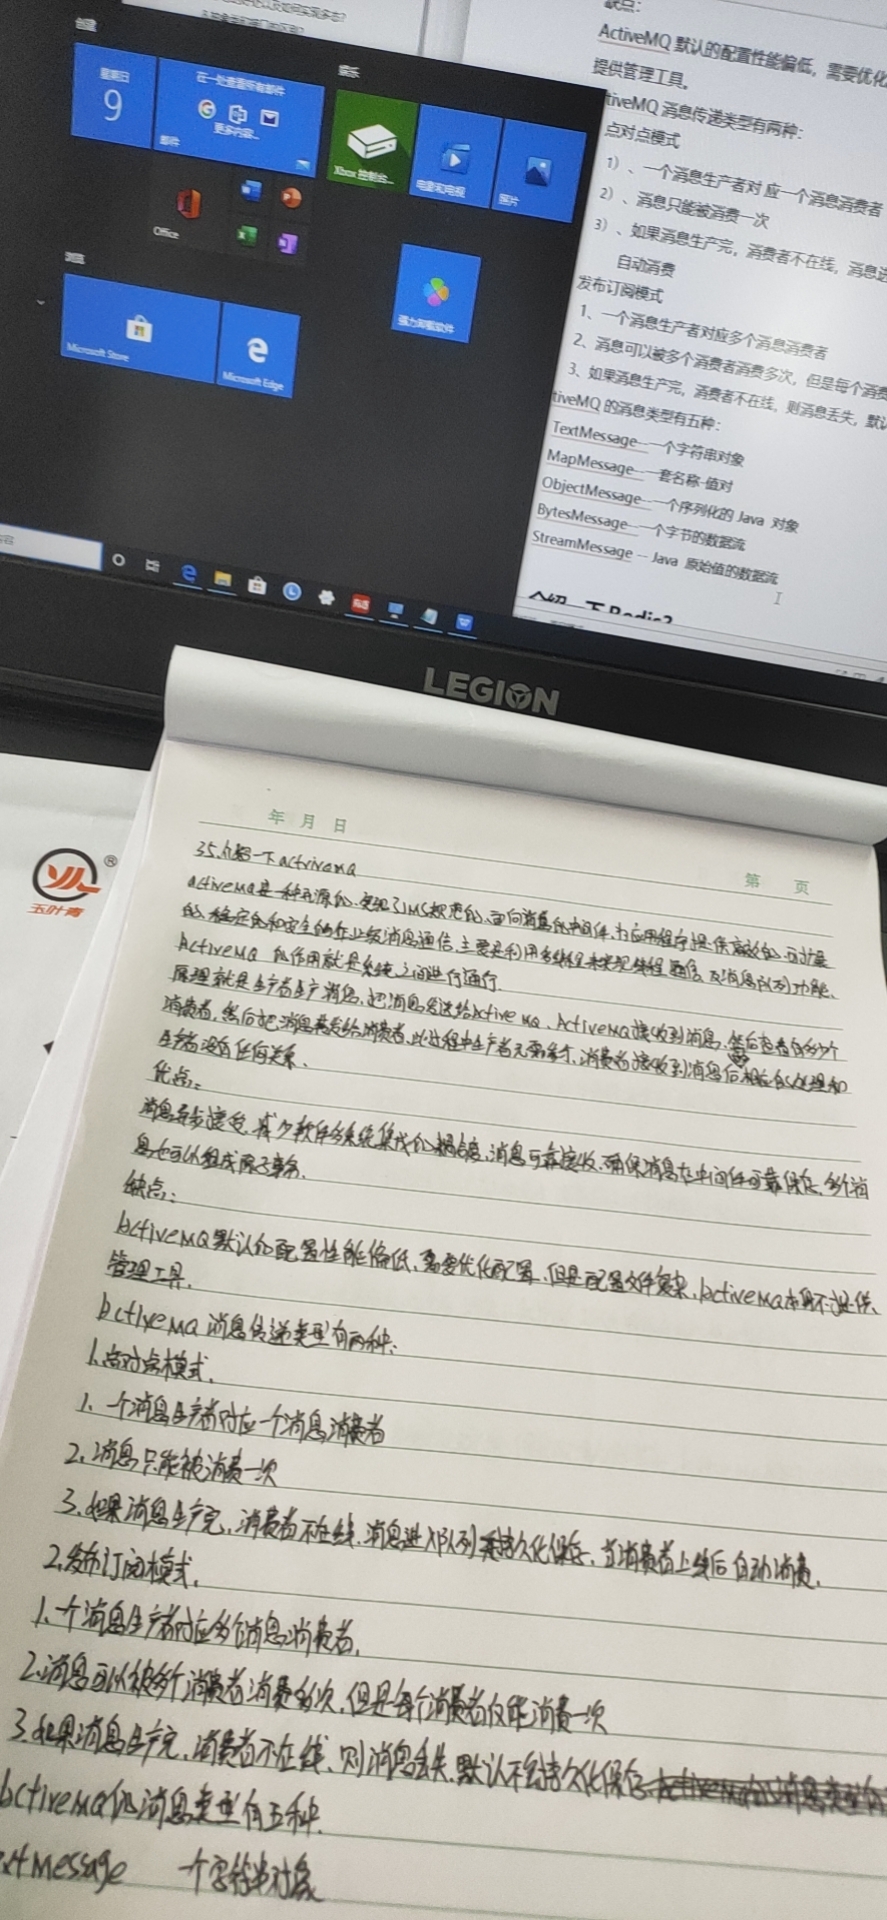 创建
娱乐
星期日
9
在一处查看所有邮件
更多内容...
邮件
Xbox 控制台...
电影和电视
照片
Office
浏览
强力卸载软件
Microsoft Store
Microsoft Edge
缺点：
ActiveMQ 默认的配置性能偏低，需要优化
提供管理工具。
tiveMQ 消息传递类型有两种：
点对点模式
1）、一个消息生产者对 应一个消息消费者
2）、消息只能被消费一次
3）、如果消息生产完，消费者不在线，消息进
自动消费
发布订阅模式
1、一个消息生产者对应多个消息消费者
2、消息可以被多个消费者消费多次，但是每个消费
3、如果消息生产完，消费者不在线，则消息丢失，默认
tiveMQ 的消息类型有五种：
TextMessage--一个字符串对象
MapMessage--一套名称-值对
ObjectMessage--一个序列化的 Java 对象
BytesMessage--一个字节的数据流
StreamMessage -- Java 原始值的数据流
介绍一下 Redis?
LEGION
玉叶青
®
年 月 日
第 页
35.介绍一下activemq
activeMQ是一种开源的,实现了JMS规范的,面向消息的中间件,为应用程序提供高效的,可扩展
的,稳定的和安全的企业级消息通信,主要是利用多线程来实现线程通信及消息队列功能.
ActiveMQ 的作用就是系统之间进行通信.
原理就是生产者生产消息,把消息发送给ActiveMQ,ActiveMQ接收到消息,然后查看有多少个
消费者,然后把消息转发给消费者,此过程中生产者无需参与,消费者接收到消息后相应的处理和
生产者没有任何关系.
优点:
消息异步接受,减少软件多系统集成的耦合度,消息可靠接收,确保消息在中间件可靠保存,多个消
息也可以组成原子事务.
缺点:
ActiveMQ默认的配置性能偏低,需要优化配置,但是配置文件复杂,ActiveMQ本身不提供
管理工具.
ActiveMQ 消息传递类型有两种:
1.点对点模式.
1. 一个消息生产者对应一个消息消费者
2.消息只能被消费一次
3.如果消息生产完,消费者不在线,消息进入队列持久化保存,当消费者上线后自动消费.
2.发布订阅模式.
1.一个消息生产者对应多个消息消费者.
2.消息可以被多个消费者消费多次,但是每个消费者仅能消费一次
3.如果消息生产完,消费者不在线,则消息丢失,默认不会持久化保存
ActiveMQ的消息类型有五种.
extMessage 一个字符串对象